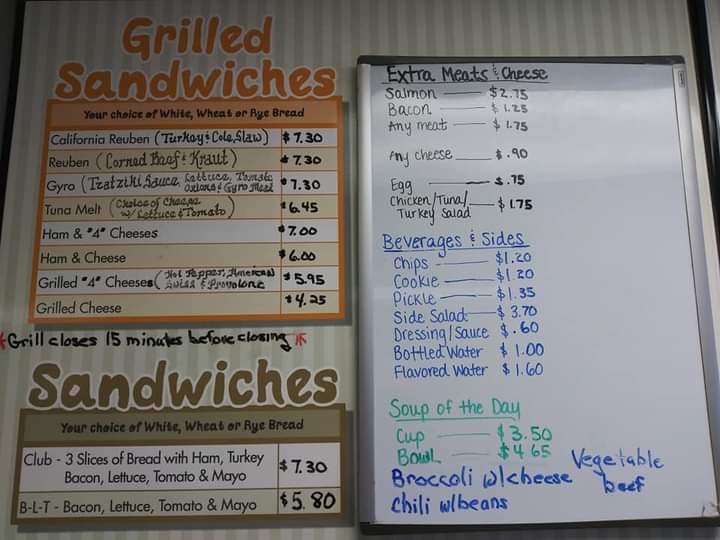 Grilled
Sandwiches
Your choice of White, Wheat or Rye Bread
California Reuben (Turkey & Cole Slaw) $7.30
Reuben (Corned Beef & Kraut) $7.30
Gyro (Tzatziki Sauce, Lettuce, Tomato, Onions & Gyro Meat $7.30
Tuna Melt (Choice of Cheese w/ Lettuce & Tomato) $6.45
Ham & "4" Cheeses $7.00
Ham & Cheese $6.00
Grilled "4" Cheeses (Hot Pepper, American Swiss & Provolone $5.95
Grilled Cheese $4.25
*Grill closes 15 minutes before closing*
Sandwiches
Your choice of White, Wheat or Rye Bread
Club - 3 Slices of Bread with Ham, Turkey
Bacon, Lettuce, Tomato & Mayo $7.30
B-L-T - Bacon, Lettuce, Tomato & Mayo $5.80
Extra Meats & Cheese
Salmon — $2.75
Bacon — $1.25
Any meat — $1.75
Any cheese — $.90
Egg — $.75
Chicken/Tuna/
Turkey Salad — $1.75
Beverages & Sides
Chips — $1.20
Cookie — $1.20
Pickle — $1.35
Side Salad — $3.70
Dressing/Sauce $.60
Bottled Water $1.00
Flavored Water $1.60
Soup of the Day
Cup — $3.50
Bowl — $4.65
Broccoli w/cheese
Vegetable
beef
Chili w/beans